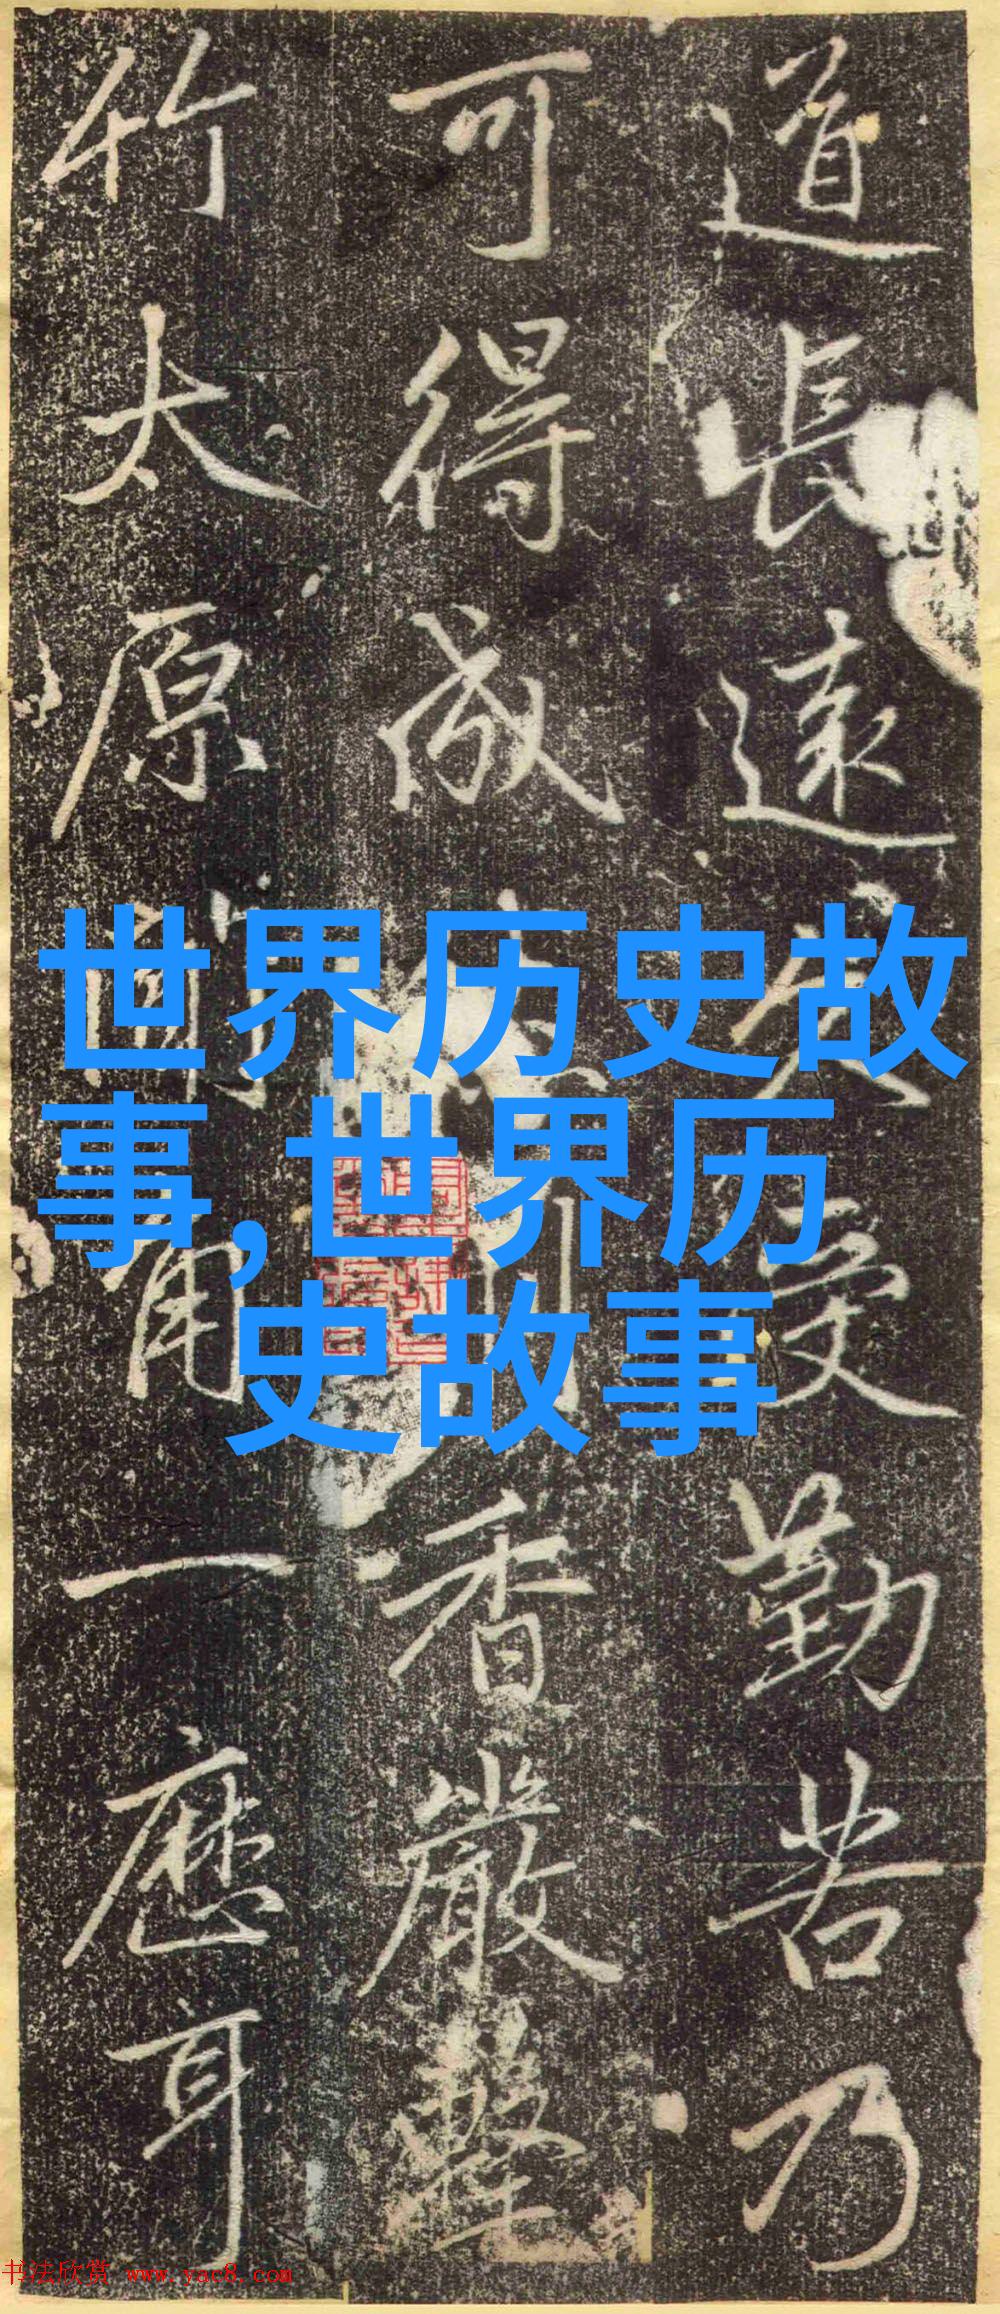 道長遠久受勤苦乃
可得成佛香嚴擊
竹太原聞角一應耳
世界历史故
事,世界历
史故事
书法欣赏 www.yac8.com